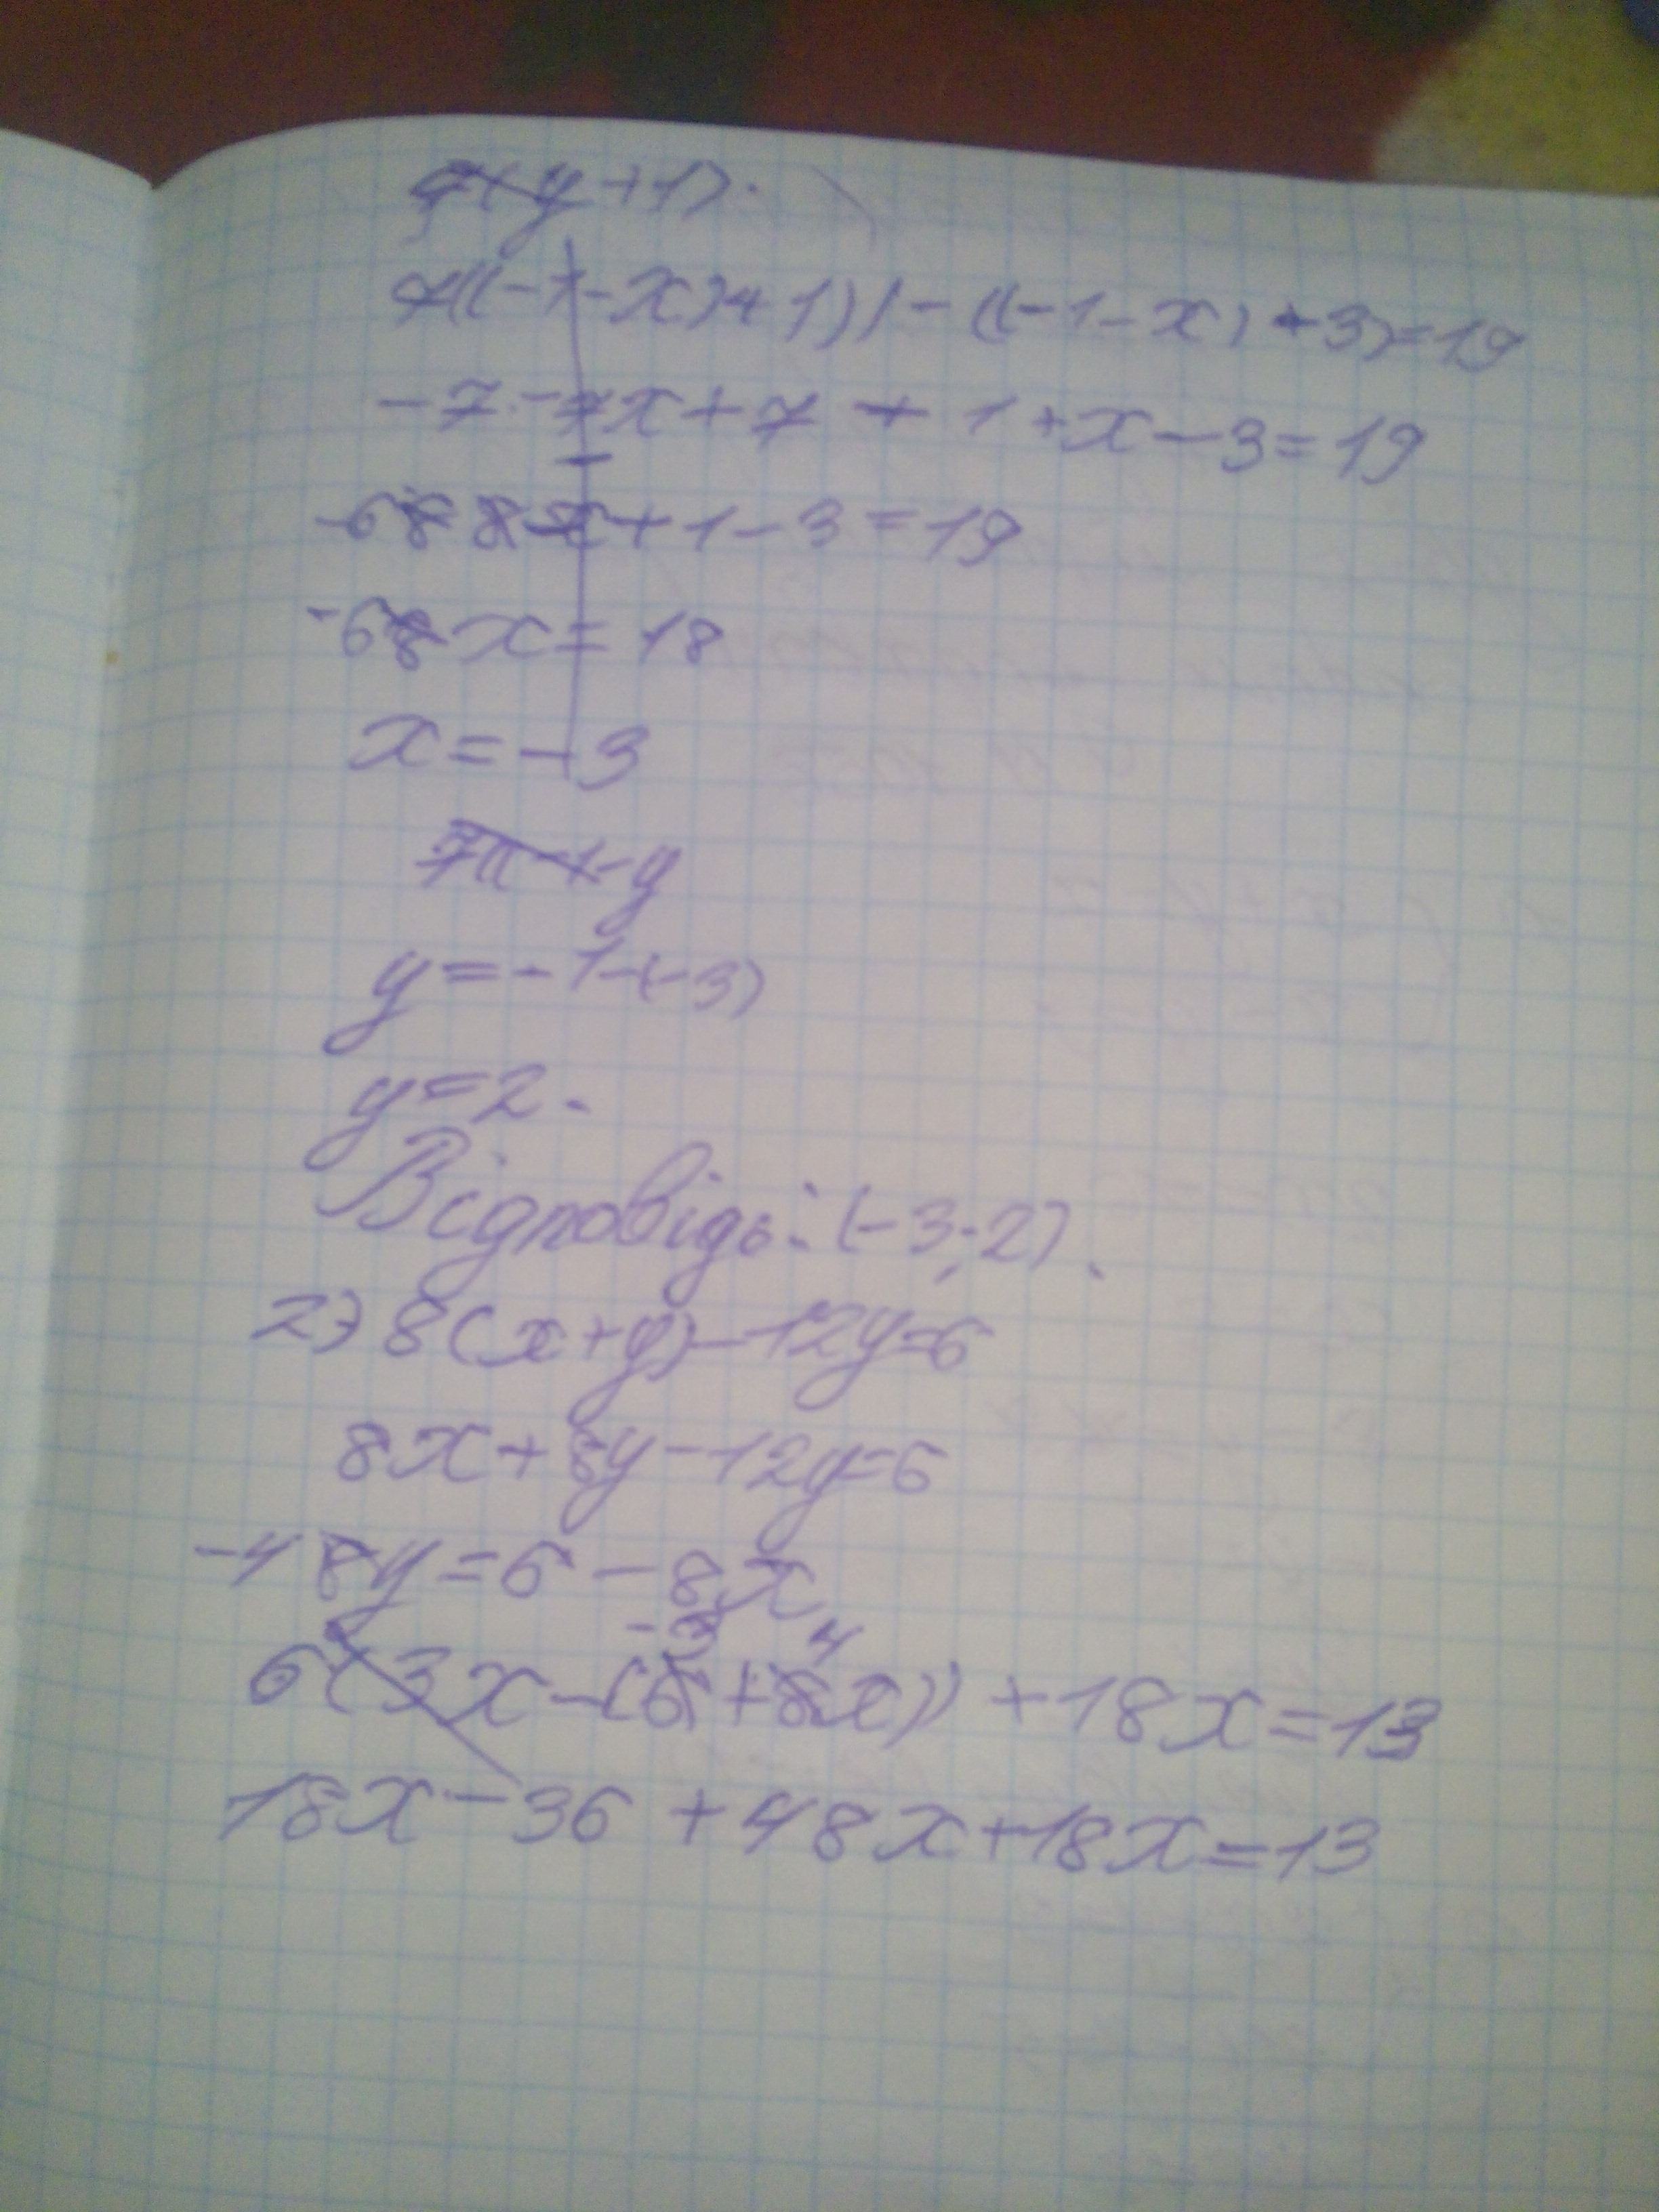 7(y+1).
7((-1-x)+1)-((-1-x)+3)=19
-7-7x+7+1+x-3=19
-6x+1-3=19
-6x=18
x=-3
y=-1-(-3)
y=2.
Відповідь: (-3;2).
2) 8(x+y)-12y=6
8x+8y-12y=6
-4y=6-8x
6(3x-(6+8x))+18x=13
18x-36+48x+18x=13